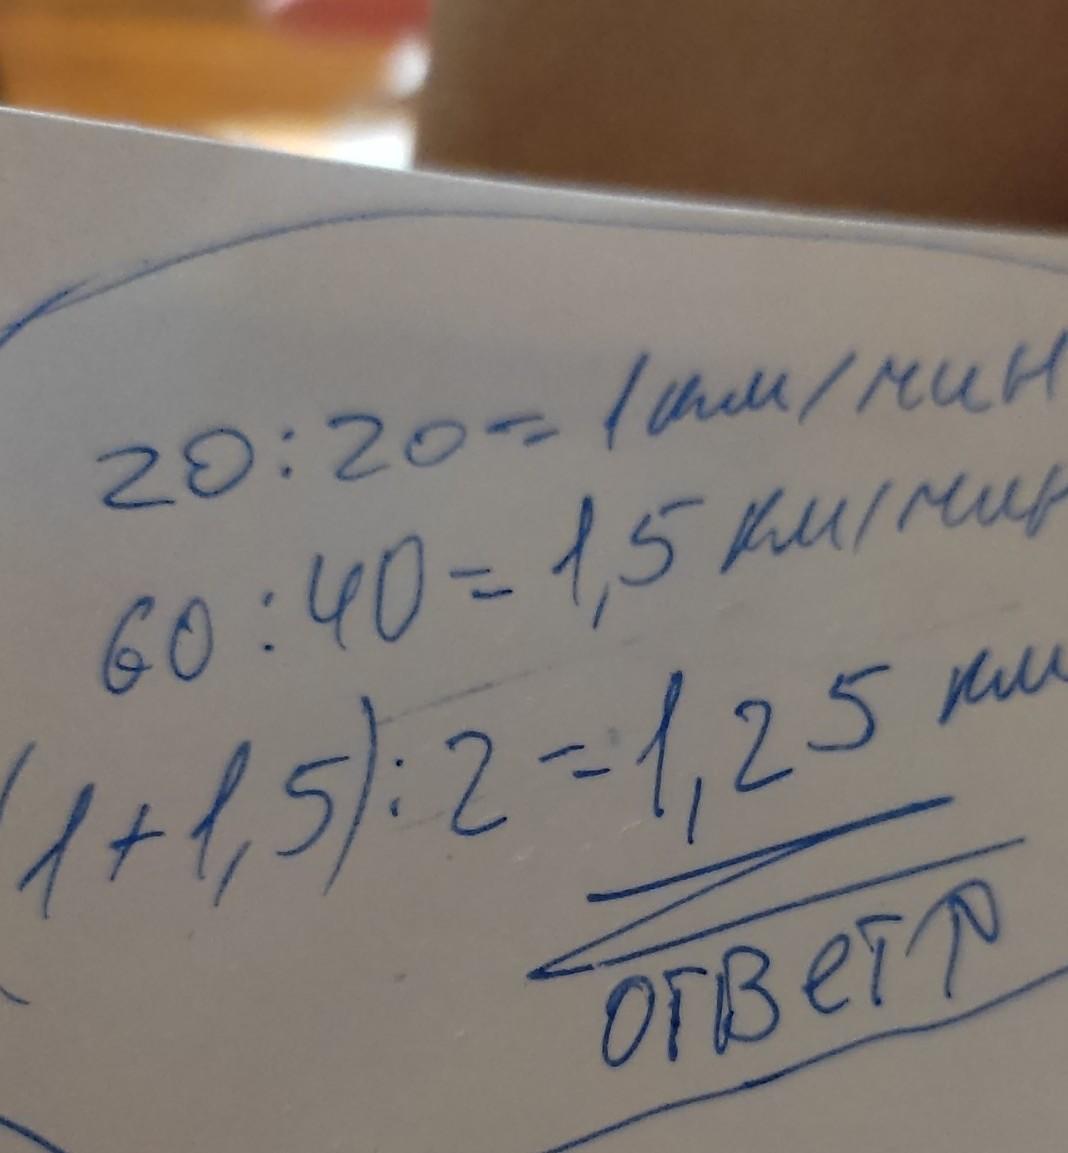 20:20=1км/мин
60:40=1,5 км/мин
(1+1,5):2=1,25 км
ответ↑